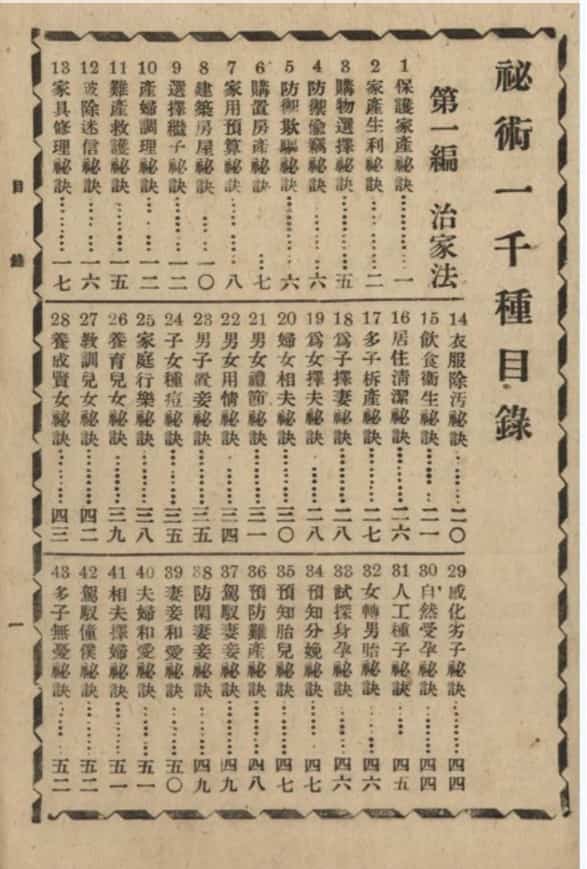 祕術一千種目錄
第一編 治家法
1 保護家產祕訣…………一
2 家產生利祕訣…………二
3 購物選擇祕訣…………五
4 防禦偷竊祕訣…………六
5 防御欺騙祕訣…………六
6 購置房產祕訣…………七
7 家用預算祕訣…………八
8 建築房屋祕訣…………一〇
9 選擇穩子祕訣…………一二
10 產婦調理祕訣…………一二
11 難產救護祕訣…………一五
12 破除迷信祕訣…………一六
13 家具修理祕訣…………一七
14 衣服除汚祕訣…………二〇
15 飲食衞生祕訣…………二一
16 居住淸潔祕訣…………二六
17 多子析產祕訣…………二七
18 爲子擇妻祕訣…………二八
19 爲女擇夫祕訣…………二八
20 婦女相夫祕訣…………三〇
21 男女禮節祕訣…………三一
22 男女用情祕訣…………三四
23 男子置妾祕訣…………三五
24 子女種痘祕訣…………三五
25 家庭行樂祕訣…………三八
26 養育兒女祕訣…………三九
27 敎訓兒女祕訣…………四二
28 養成賢女祕訣…………四三
29 感化劣子祕訣…………四四
30 自然受孕祕訣…………四四
31 人工種子祕訣…………四五
32 女轉男胎祕訣…………四六
33 試探身孕祕訣…………四六
34 預知分娩祕訣…………四七
35 預知胎兒祕訣…………四七
36 預防難產祕訣…………四八
37 駕馭妻妾祕訣…………四九
38 防閑妻妾祕訣…………四九
39 妻妾和愛祕訣…………五〇
40 夫婦和愛祕訣…………五一
41 相夫擇婦祕訣…………五一
42 駕馭僮僕祕訣…………五二
43 多子無憂祕訣…………五二
目錄
一